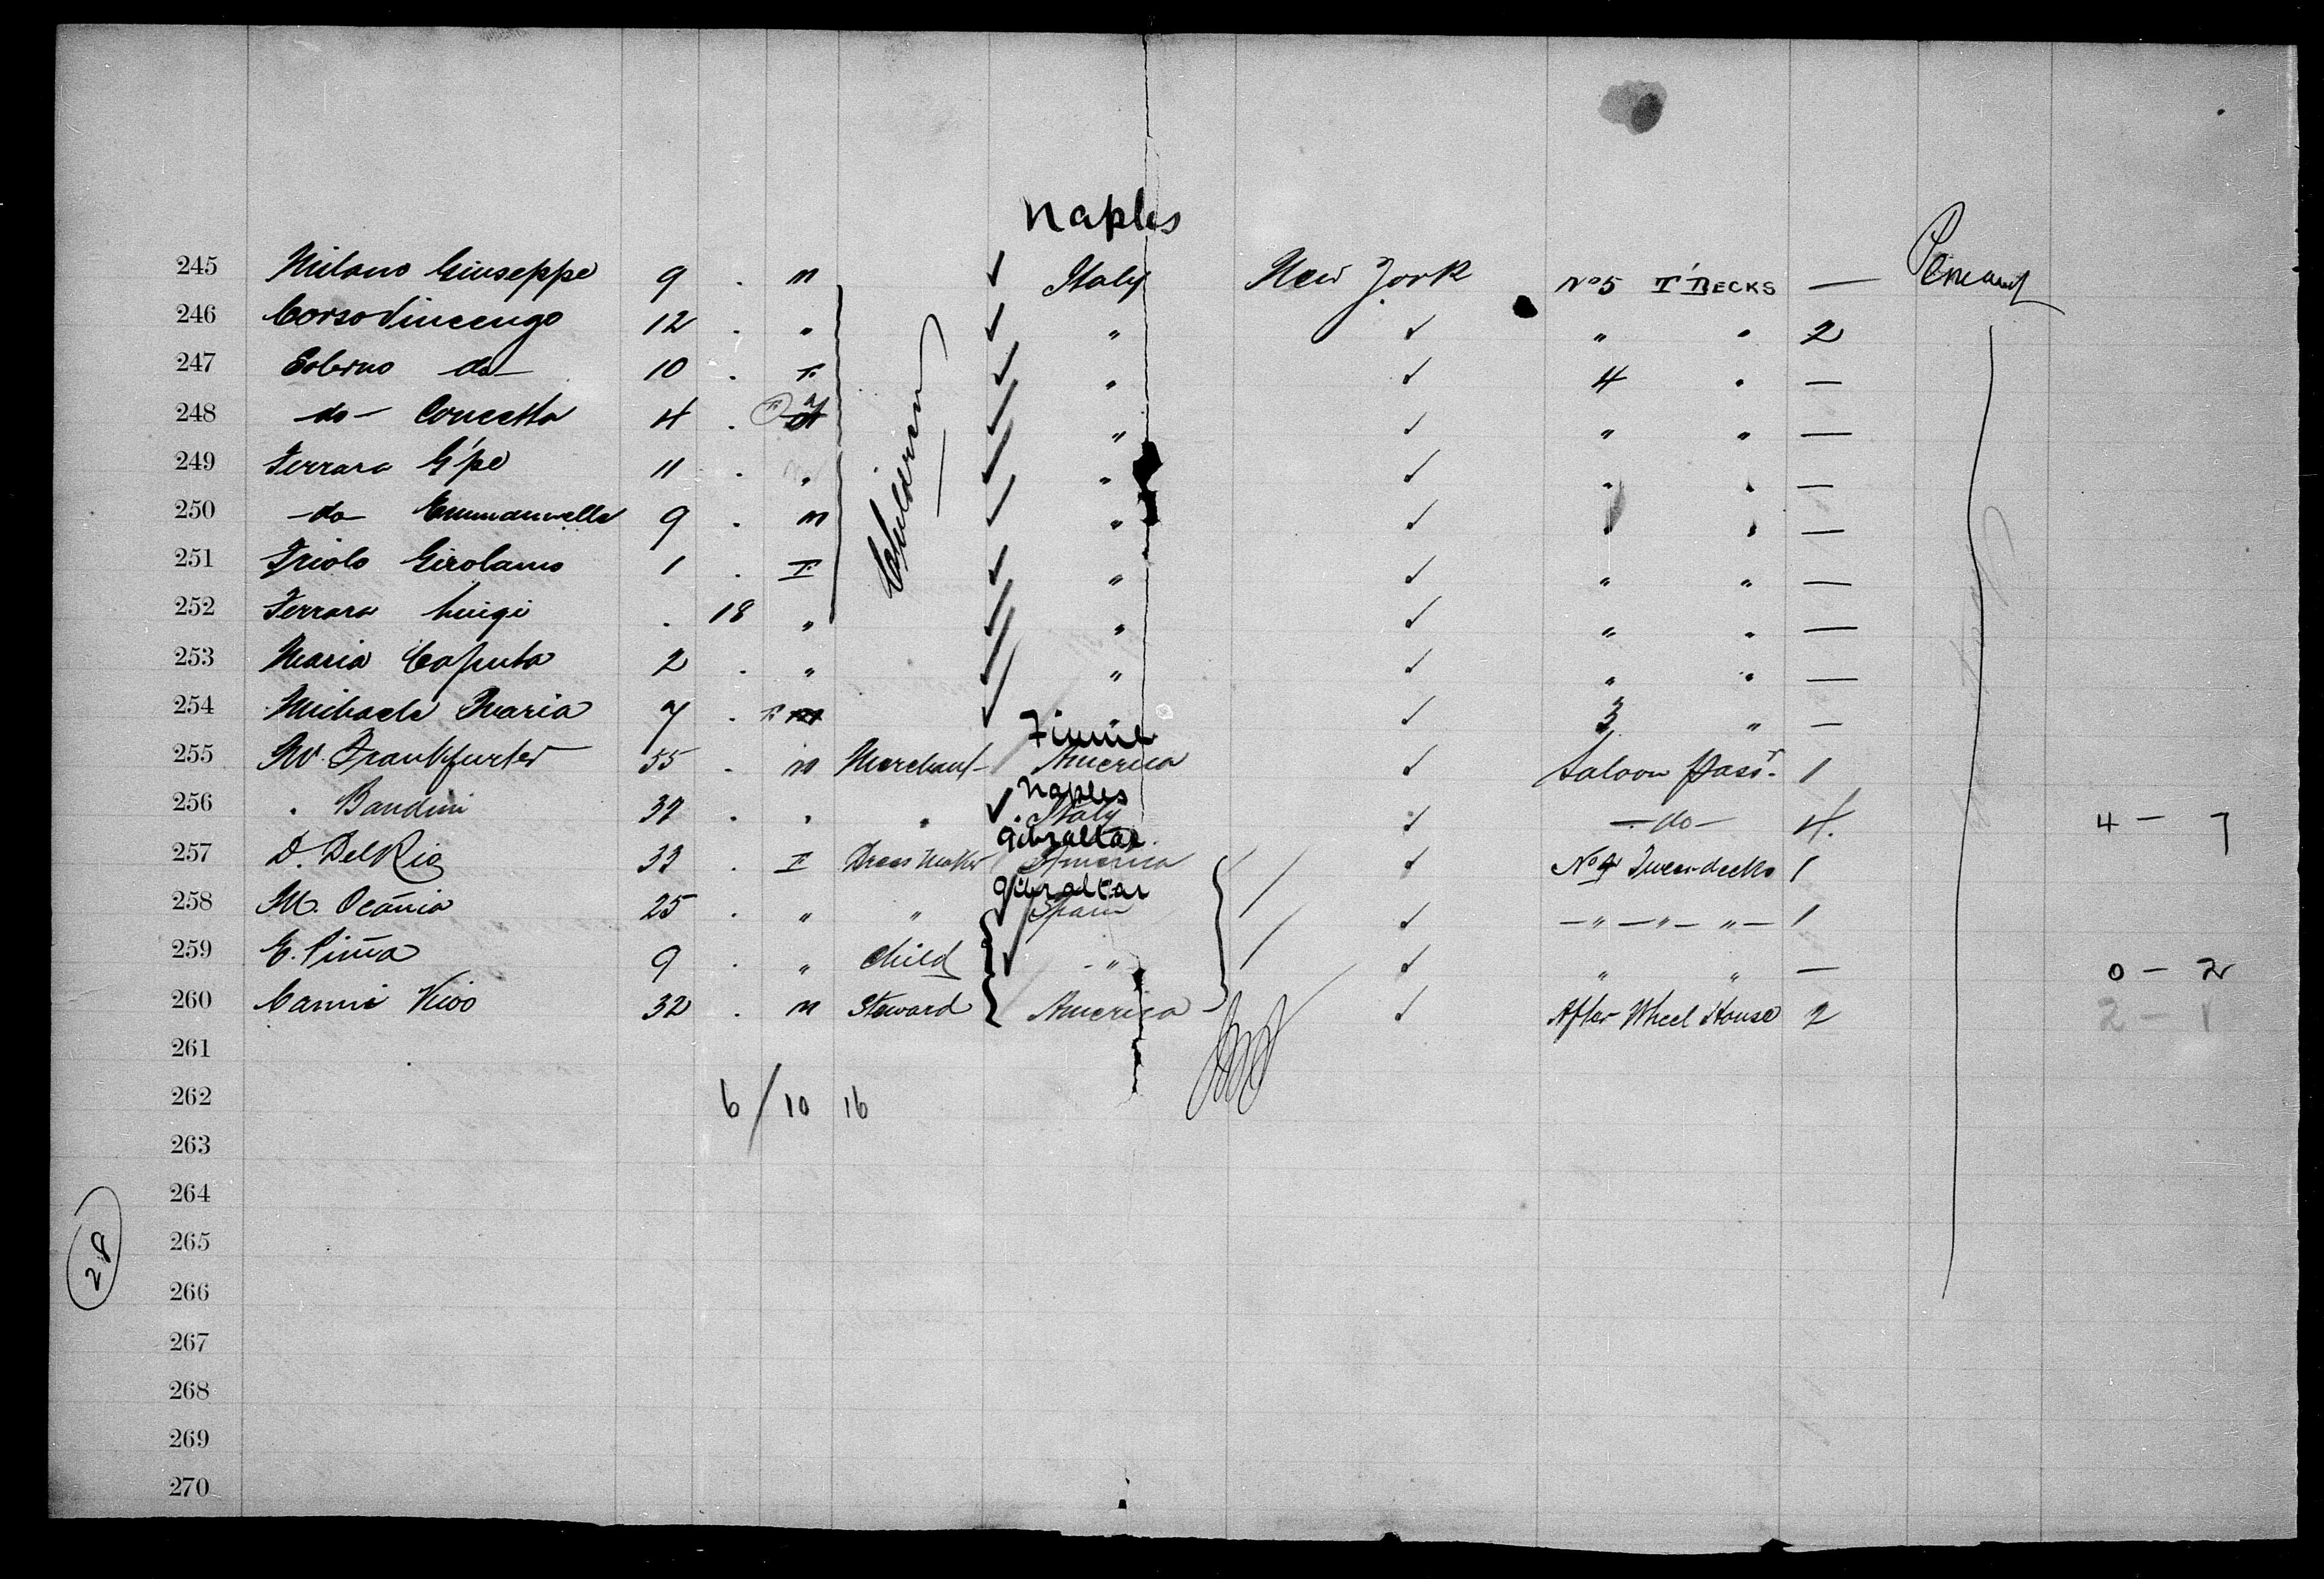 Naples
245 Milano Giuseppe 9 . m Italy New York No 5 T'DECKS — Permant
246 Corso Vincenzo 12 . " " ✓ " " 2
247 do 10 . F. " ✓ 4 " —
248 -do- Concetta 4 . F " ✓ " " —
249 Ferrara G'pe 11 . " " ✓ " " —
250 -do- Emmanuella 9 . m " ✓ " " —
251 Triolo Girolamo 1 . F " ✓ " " —
252 Ferrara Luigi . 18 " " ✓ " " —
253 Maria Caputa 2 . " " ✓ " " —
254 Michaele Maria 7 . F. m ✓ 3 " —
Children
Fiume
255 Mr Frankfurter 55 . m Merchant America ✓ Saloon Passr. 1
Naples
256 " Bandini 37 . " " Italy ✓ -do- 4. 4 - 7
Gibraltar
257 D. Del Rio 33 . F Dress Maker America ✓ No 4 Tween decks 1
Gibraltar
258 M. Ocãnia 25 . " " Spain ✓ -"-"-"- 1
259 E. Pinña 9 . " Child -" ✓ " " — 0 - 2
260 32 . m Steward America ✓ After Wheel House 2 2 - 1
261
262 6/10 16
263
264
265
28
266
267
268
269
270